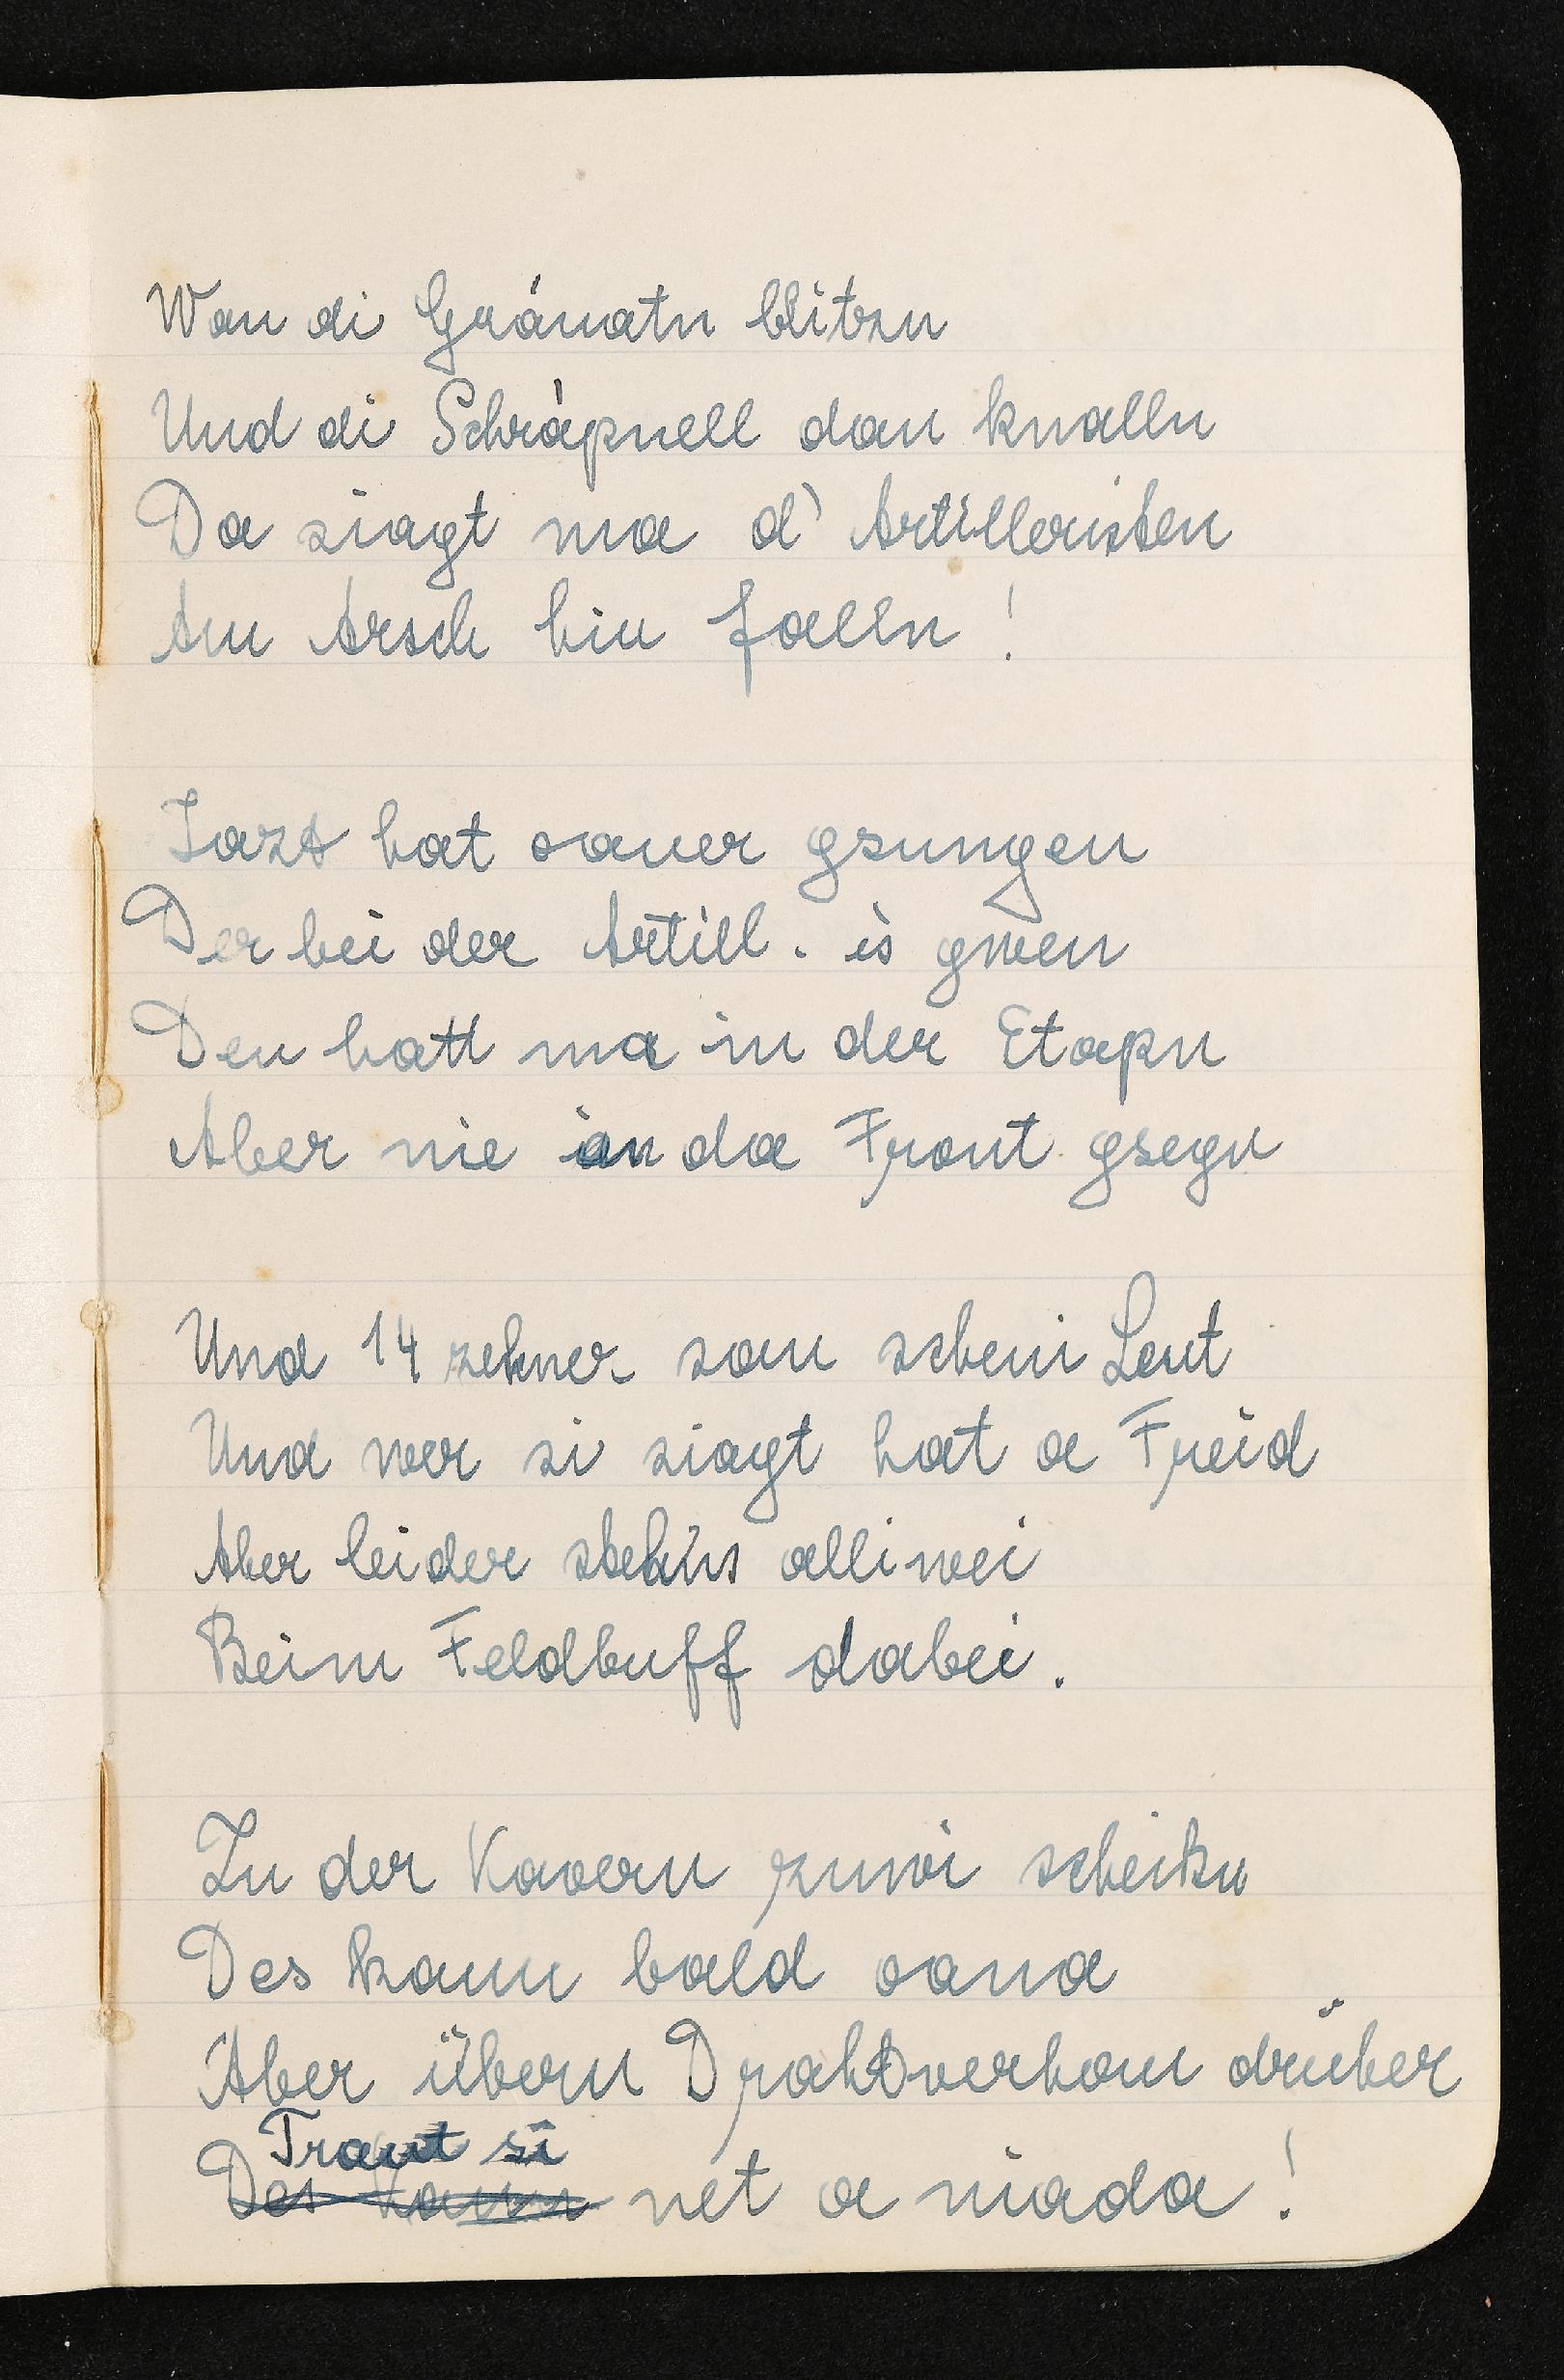 Wan di Gránatn blitzn
Und di Schrápnell dan knalln
Da siagt ma d' Artilleristen
Am Arsch hin falln!
Iazt hat oaner gsungen
Der bei der Artill. is gwen
Den hatt ma in der Etapn
Aber nie an da Front gsegn
Und 14 zehner san scheni Leut
Und wer si siagt hat a Freid
Aber leider stehns alliwei
Beim Feldbuff dabei.
In der Kavern zuwi scheikn
Des kann bald oana
Aber übern Drahtverhau drüber
Traut si
Des kann net a niada!